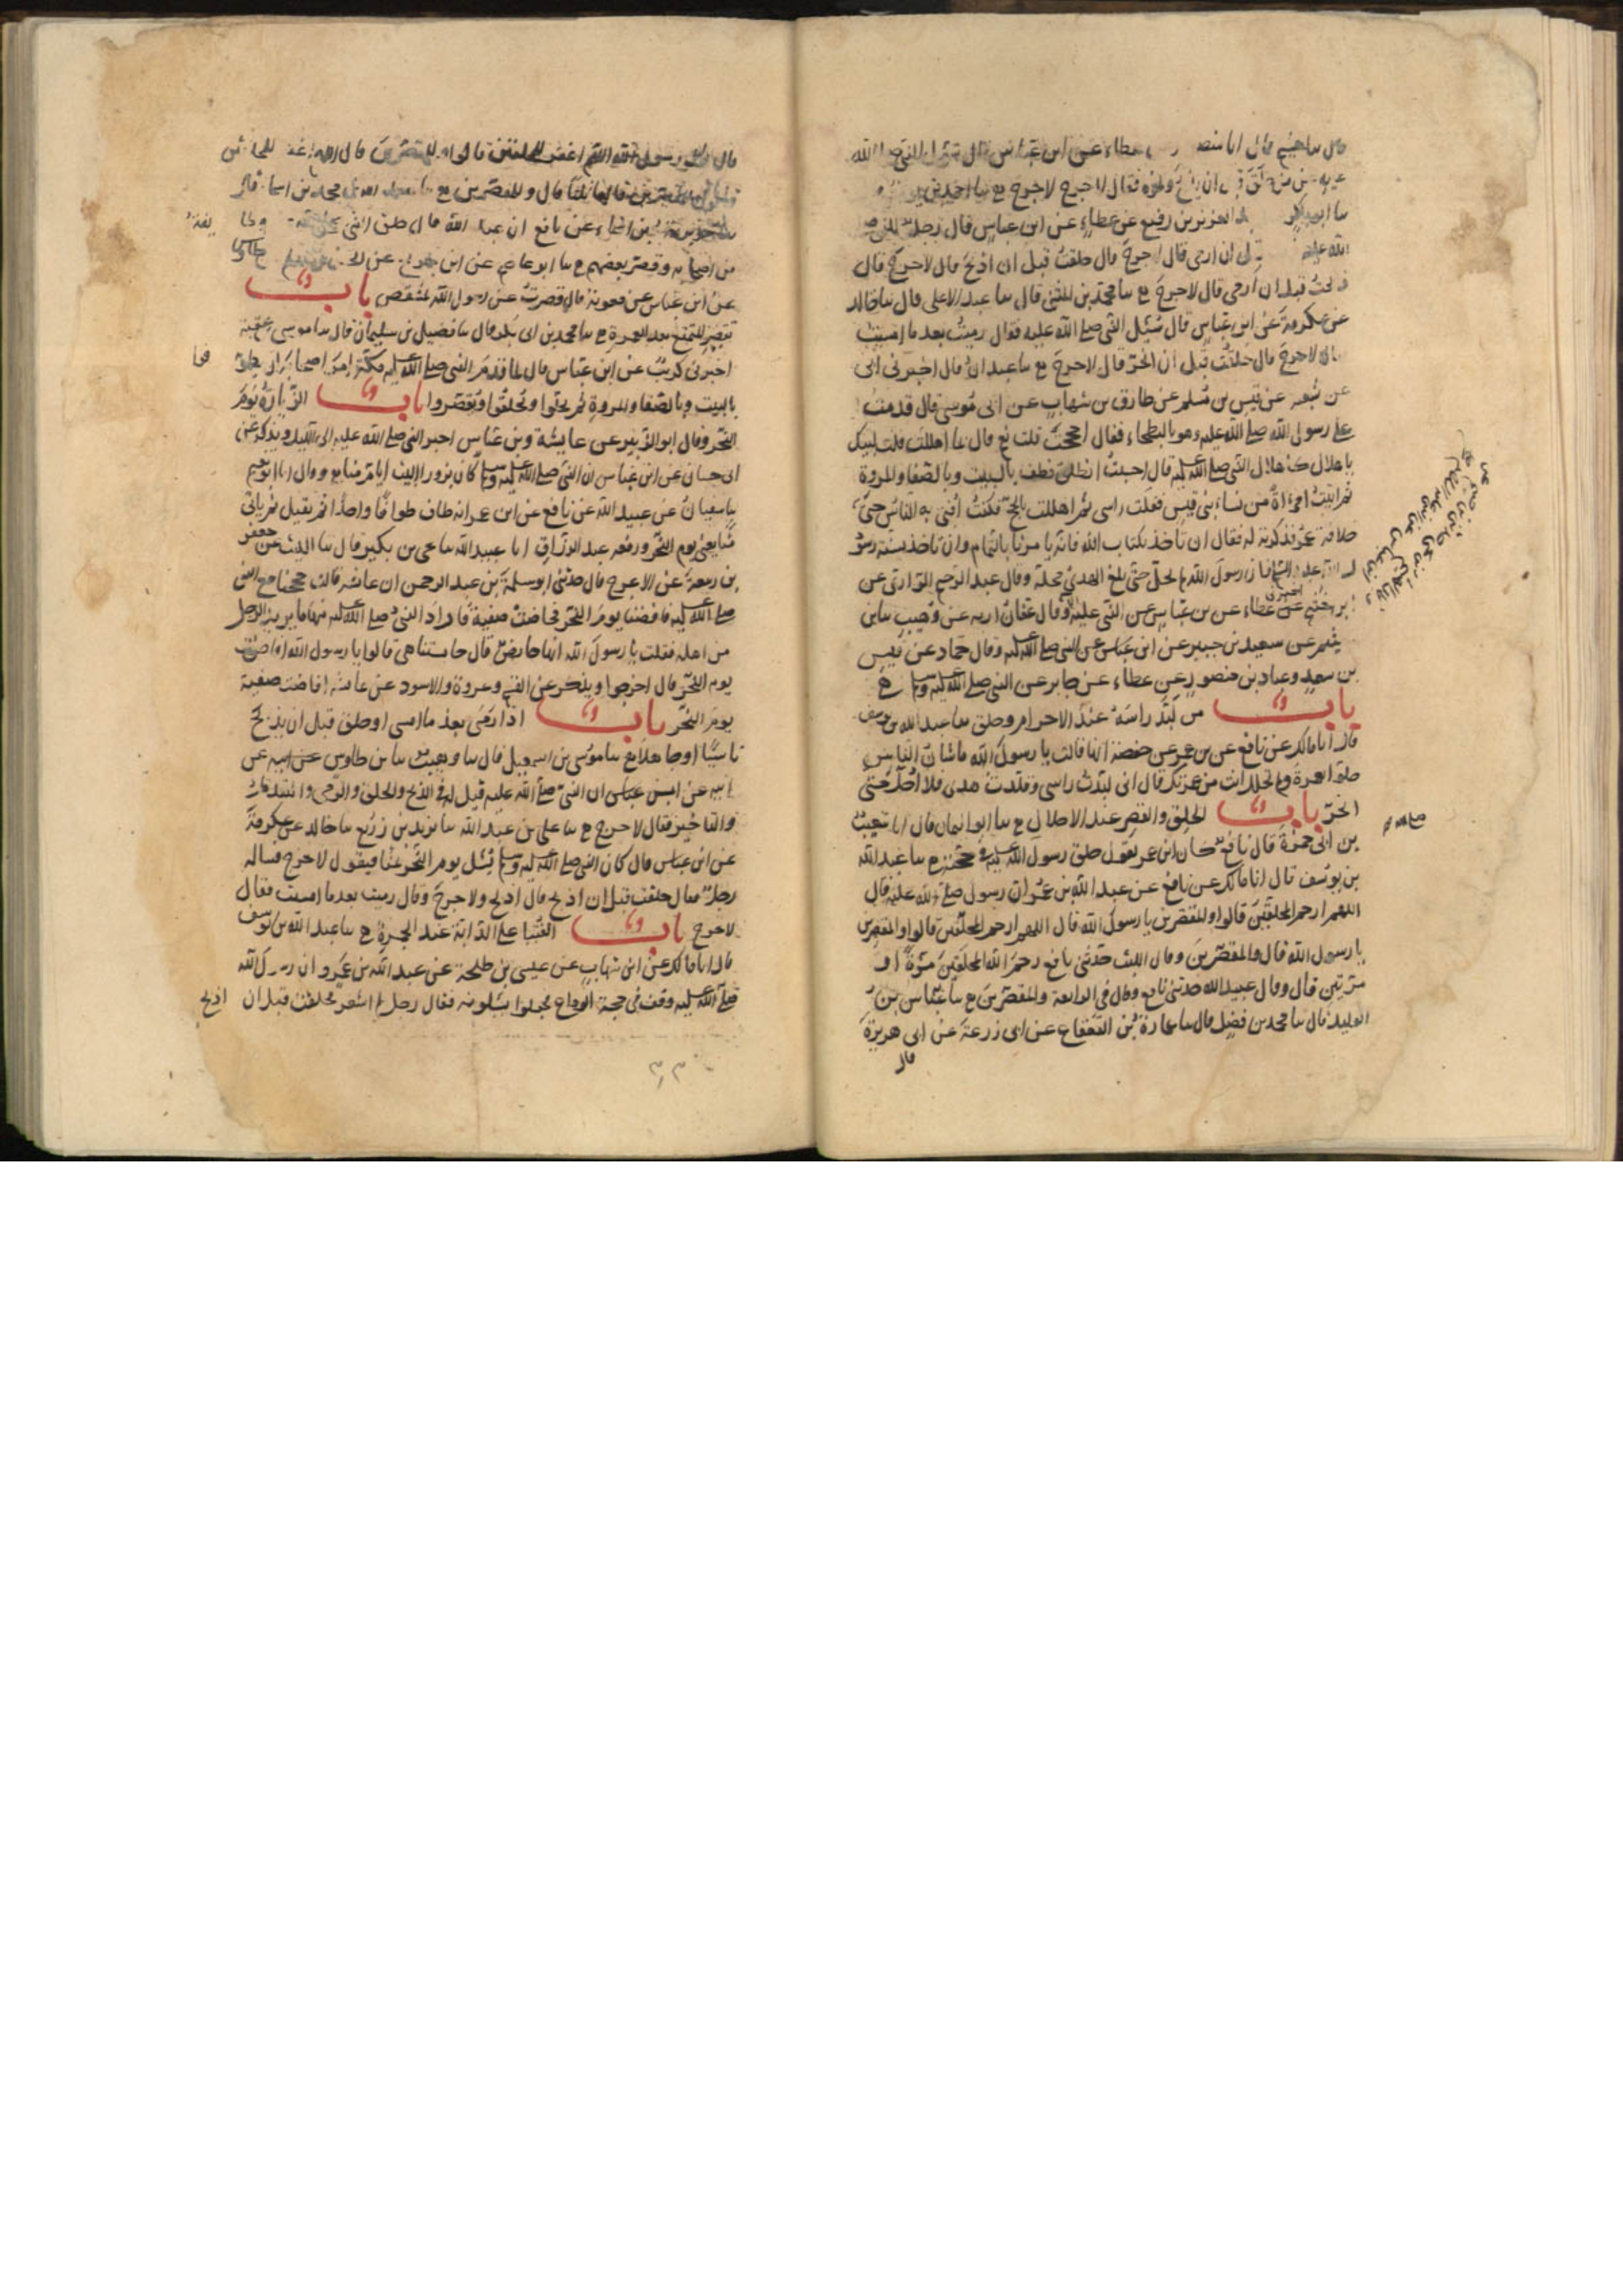 قال سا هشيم قال انا منصور عن عطاء عن ابن عباس قال سئل النبي صلى الله
عليه عمن حلق قبل ان يذبح ونحوه فقال لا حرج لا حرج ح سا احمد بن يونس
سا ابو بكر عبد العزيز بن رفيع عن عطاء عن ابن عباس قال رجل للنبي صلى
الله عليه قبل ان ارمى قال لا حرج قال حلقت قبل ان اذبح قال لا حرج قال
ذبحت قبل ان ارمى قال لا حرج ح سا محمد بن المثنى قال سا عبد الاعلى قال سا خالد
عن عكرمة عن ابن عباس قال سئل النبي صلى الله عليه فقال رميت بعد ما امسيت
قال لا حرج قال حلقت قبل ان انحر قال لا حرج ح سا عبدان قال اخبرني ابى
عن شعبه عن قيس بن مسلم عن طارق بن شهاب عن ابى موسى قال قدمت
على رسول الله صلى الله عليه وهو بالبطحاء فقال احججت قلت نعم قال بما اهللت قلت لبيك
باهلال كاهلال النبي صلى الله عليه قال احسنت انطلق فطف بالبيت وبالصفا والمروة
ثم اتيت امراة من نساء بنى قيس ففلت راسى ثم اهللت بالحج فكنت افتى به الناس حتى
خلافة عمر فذكرته له فقال ان ناخذ بكتاب الله فانه يامرنا بالتمام وان ناخذ بسنة رسو
ل الله رسول الله لم يحل حتى بلغ الهدى محله وقال عبد الرحيم الرازى عن
بن خثيم عن عطاء عن بن عباس عن النبي عليه وقال عفان اريه عن وهيب سا بن
خيثم عن سعيد بن جبير عن ابن عباس عن النبي صلى الله عليه وقال حماد عن قيس
بن سعد وعباد بن منصور عن عطاء عن جابر عن النبي صلى الله عليه وسلم
باب من لبد راسه عند الاحرام وحلق سا عبد الله بن يوسف
قال انا مالك عن نافع عن بن عمر عن حفصة انها قالت يا رسول الله ما شان الناس
حلو العمرة ولم تحلل انت من عمرتك قال انى لبدت راسى وقلدت هدى فلا احل حتى
انحر باب الحلق والقصر عند الاحلال ح سا ابو اليمان قال انا شعيب
بن ابى حمزة قال نافع كان ابن عمر يقول حلق رسول الله صلى الله عليه في حجته ح سا عبد الله
بن يوسف قال انا مالك عن نافع عن عبد الله بن عمر ان رسول صلى الله عليه قال
اللهم ارحم المحلقين قالوا والمقصرين يا رسول الله قال اللهم ارحم المحلقين قالوا والمقصرين
يا رسول الله قال والمقصرين وقال الليث حدثنى نافع رحم الله المحلقين مرة او
مرتين قال وقال عبيد الله حدثنى نافع وقال في الرابعة والمقصرين ح سا عباس بن
الوليد قال سا محمد بن فضيل قال سا عمارة بن القعقاع عن ابى زرعة عن ابى هريرة
قال
قال قال رسول الله اللهم اغفر للمحلقين قالوا وللمقصرين قال اللهم اغفر للمحلقين
قالوا وللمقصرين قالها ثلثا قال وللمقصرين ح سا عبد الله بن محمد بن اسما قال
سا جويرية بن اسماء عن نافع ان عبد الله قال حلق النبي وطايفة
من اصحابه وقصر بعضهم ح سا ابو عاصم عن ابن جريج عن الحسن بن مسلم عن طاوس
عن ابن عباس عن معوية قال قصرت عن رسول الله بمشقص باب
تقصير المتمتع بعد العمرة ح سا محمد بن ابى بكر قال سا فضيل بن سليمان قال سا موسى بن عقبة
اخبرنى كريب عن ابن عباس قال لما قدم النبي صلى الله عليه مكة امر اصحابه ان يطوفوا
بالبيت وبالصفا والمروة ثم يحلوا ويحلقوا ويقصروا باب الزيارة يوم
النحر وقال ابو الزبير عن عايشة وبن عباس اخر النبي صلى الله عليه الى الليل ويذكر عن
ابى حسان عن ابن عباس ان النبي صلى الله عليه وسلم كان يزور البيت ايام منا ح وقال انا ابو نعيم
سا سفيان عن عبيد الله عن نافع عن ابن عمر انه طاف طوافا واحدا ثم يقيل ثم ياتى
منا يعنى يوم النحر ورفعه عبد الرزاق انا عبيد الله سا يحيى بن بكير قال سا الليث عن جعفر
بن ربيعة عن الاعرج قال حدثنى ابو سلمة بن عبد الرحمن ان عائشه قالت حججنا مع النبي
صلى الله عليه فافضنا يوم النحر فحاضت صفية فاراد النبي صلى الله عليه منها ما يريد الرجل
من اهله فقلت يا رسول الله انها حائض قال حابستنا هي قالوا يا رسول الله افاضت
يوم النحر قال اخرجوا ويذكر عن القسم وعروة والاسود عن عائشه افاضت صفية
يوم النحر باب اذا رمى بعد ما امسى او حلق قبل ان يذبح
ناسيا او جاهلا ح سا موسى بن اسمعيل قال سا وهيب سا بن طاوس عن ابيه عن
ابيه عن ابن عباس ان النبي صلى الله عليه قيل له في الذبح والحلق والرمى والتقديم
والتاخير فقال لا حرج ح سا على بن عبد الله سا يزيد بن زريع سا خالد عن عكرمة
عن ابن عباس قال كان النبي صلى الله عليه وسلم يسئل يوم النحر بمنا فيقول لا حرج فساله
رجل فقال حلقت قبل ان اذبح قال اذبح ولا حرج وقال رميت بعد ما امسيت فقال
لا حرج باب الفتيا على الدابة عند الجمرة ح سا عبد الله بن يوسف
قال انا مالك عن ابن شهاب عن عيسى بن طلحة عن عبد الله بن عمرو ان رسول الله
صلى الله عليه وقف في حجة الوداع فجعلوا يسلونه فقال رجل لم اشعر فحلقت قبل ان اذبح